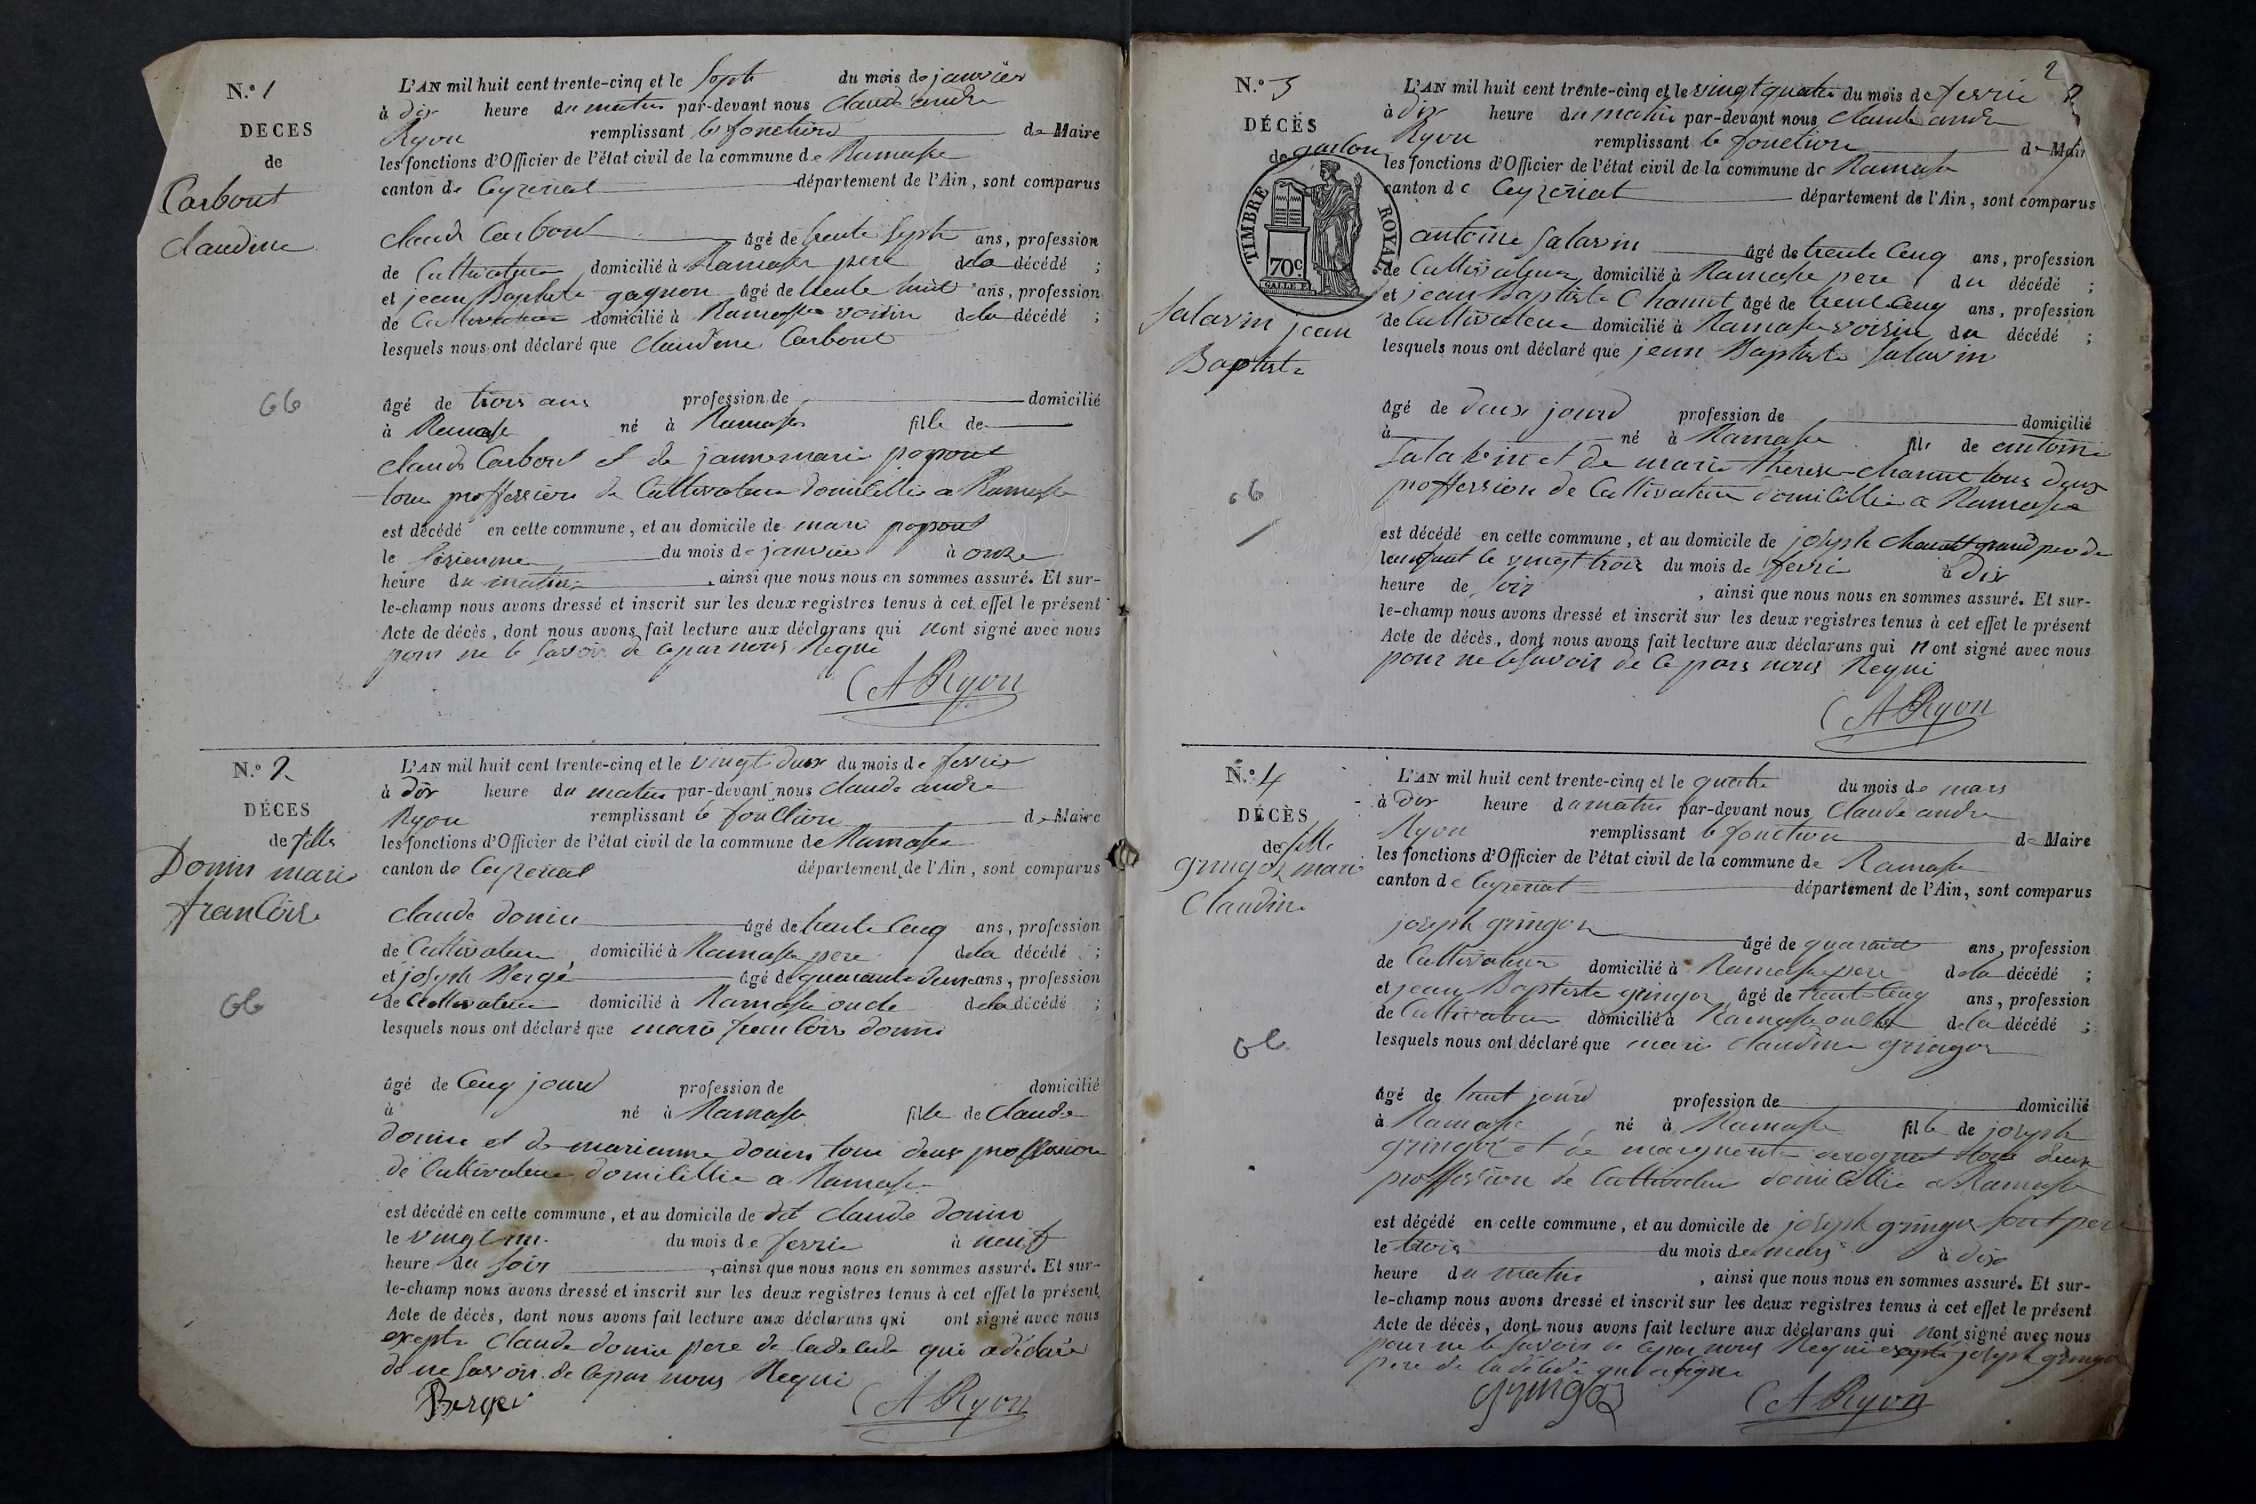 N.º 1
DECES
de
Carbout
claudine
66
L'AN mil huit cent trente-cinq et le Septe du mois de janvier
à dix heure du matin par-devant nous claude andre
Ryon remplissant le fonctions de Maire
les fonctions d'Officier de l'état civil de la commune de Ramasse
canton de Ceyzeriat département de l'Ain, sont comparus
claude Carbout âgé de trente Septe ans, profession
de Cultivateur domicilié à Ramasse pere de la décédé ;
et jean Baptiste gagnon âgé de trente huit ans, profession
de Cultivateur domicilié à Ramasse voisin de la décédé ;
lesquels nous ont déclaré que claudine Carbout
âgé de trois ans profession de domicilié
à Ramasse né à Ramasse fille de
claude Carbout et de jannemarie popont
tous proffession de Cultivateur domicillié a Ramasse
est décédé en cette commune, et au domicile de marie popont
le Sixieme du mois de janvier à onze
heure du matin, ainsi que nous nous en sommes assuré. Et sur-
le-champ nous avons dressé et inscrit sur les deux registres tenus à cet effet le présent
Acte de décès, dont nous avons fait lecture aux déclarans qui nont signé avec nous
pour ne le Savoir de ce par nous Requi
CARyon
N.º 2
DÉCES
de fille
Donin marie
francoise
66
L'AN mil huit cent trente-cinq et le vingt deux du mois de fevrier
à dix heure du matin par-devant nous claude andre
Ryon remplissant le fonction de Maire
les fonctions d'Officier de l'état civil de la commune de Ramasse
canton de Ceyzeriat département de l'Ain, sont comparus
claude donin âgé de trente Cenq ans, profession
de Cultivateur domicilié à Ramasse pere de la décédé ;
et joseph Bergé âgé de quarante deux ans, profession
de Cultivateur domicilié à Ramasse oncle de la décédé ;
lesquels nous ont déclaré que marie francoise donin
âgé de Cenq jourd profession de domicilié
à né à Ramasse fille de claude
donin et de marianne donin tous deux proffession
de Cultivateur domicillié a Ramasse
est décédé en cette commune, et au domicile de dit claude donin
le vingt un du mois de fevrie à neuf
heure du Soir, ainsi que nous nous en sommes assuré. Et sur-
le-champ nous avons dressé et inscrit sur les deux registres tenus à cet effet le présent
Acte de décès, dont nous avons fait lecture aux déclarans qui ont signé avec nous
excepte claude donin pere de la qui a déclaré
de ne Savoir de ce par nous Requi
Berger CARyon
2
N.º 3
DÉCÈS
de garson
TIMBRE ROYAL
70c.
Salavin jean
Baptiste
66
L'AN mil huit cent trente-cinq et le vingt quatre du mois de fevrie
à dix heure du matin par-devant nous claude andre
Ryon remplissant le fonction de Maire
les fonctions d'Officier de l'état civil de la commune de Ramasse
canton de Ceyzeriat département de l'Ain, sont comparus
antoine Salavin âgé de trente Cenq ans, profession
de Cultivateur domicilié à Ramasse pere du décédé ;
et jean Baptiste Chanut âgé de trente Cenq ans, profession
de Cultivateur domicilié à Ramasse voisin du décédé ;
lesquels nous ont déclaré que jean Baptiste Salavin
âgé de deux jourd profession de domicilié
à né à Ramasse fils de antoine
Salavin et de marie therese chanut tous deux
proffession de Cultivateur domicillié a Ramasse
est décédé en cette commune, et au domicile de joseph chanut grand pere de
lenfant le vingt trois du mois de fevrie à dix
heure de Soir, ainsi que nous nous en sommes assuré. Et sur-
le-champ nous avons dressé et inscrit sur les deux registres tenus à cet effet le présent
Acte de décès, dont nous avons fait lecture aux déclarans qui n ont signé avec nous
pour ne le Savoir de ce pars nous Requi
CARyon
N.º 4
DÉCÈS
de fille
gringoz marie
Claudine
66
L'AN mil huit cent trente-cinq et le quatre du mois de mars
à dix heure du matin par-devant nous Claude andre
Ryon remplissant le fonction de Maire
les fonctions d'Officier de l'état civil de la commune de Ramasse
canton de Ceyzeriat département de l'Ain, sont comparus
joseph gringoz âgé de quarante ans, profession
de Cultivateur domicilié à Ramasse pere de la décédé ;
et jean Baptiste gringoz âgé de trente Cenq ans, profession
de Cultivateur domicilié à Ramasse oncle de la décédé ;
lesquels nous ont déclaré que marie claudine gringoz
âgé de huit jourd profession de domicilié
à Ramasse né à Ramasse fille de joseph
gringoz et de marguerite tous deux
proffession de Cultivateur domicillié a Ramasse
est décédé en cette commune, et au domicile de joseph gringoz sont pere
le trois du mois de mars à dix
heure du matin, ainsi que nous nous en sommes assuré. Et sur-
le-champ nous avons dressé et inscrit sur les deux registres tenus à cet effet le présent
Acte de décès, dont nous avons fait lecture aux déclarans qui nont signé avec nous
pour ne le Savoir de ce par nous Requi excepte joseph gringoz
pere de la décédé qui a signe
gringoz CARyon